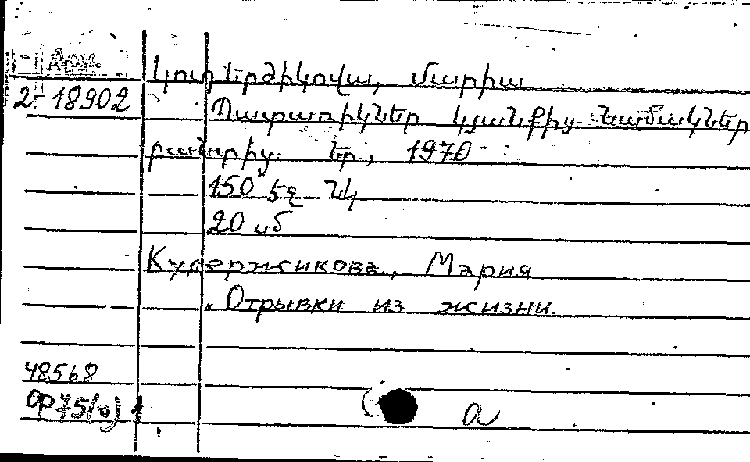 Արմ.
2-18902
Կուդերժիկովա, Մարիա
Պատառիկներ կյանքից: Նամակներ
բանտից: Եր., 1970
150 էջ նկ
20 սմ
Кудержикова, Мария
Отрывки из жизни.
48568
ор75(օ) 1
а